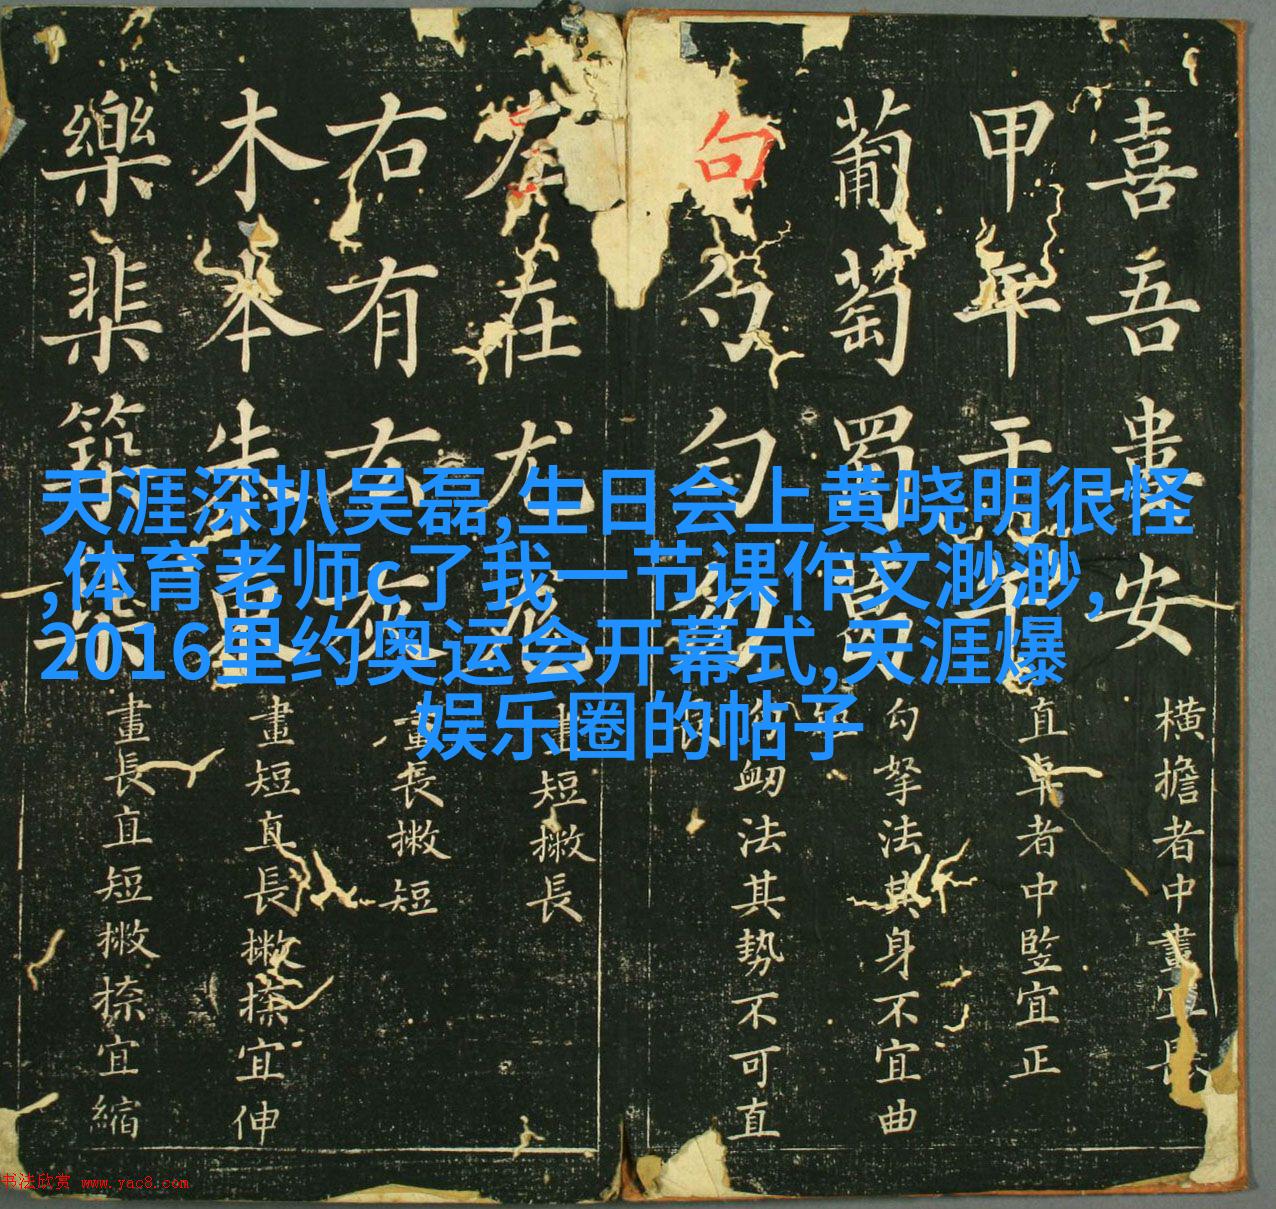 天涯深扒吴磊,生日会上黄晓明很怪
,体育老师c了我一节课作文渺渺,
2016里约奥运会开幕式,天涯爆
娱乐圈的帖子
喜吾安
横擔者中畫宜長
甲干
直卓者中宜正
葡萄蜀
勾拏法其身不宜曲
句勺勻勿
法其勢不可直
左在尤
畫短撇長
右有友灰
畫長撇短
木本朱
畫短直長撇捺宜伸
樂棐築
畫長直短撇捺宜縮
书法欣赏 www.yac8.com